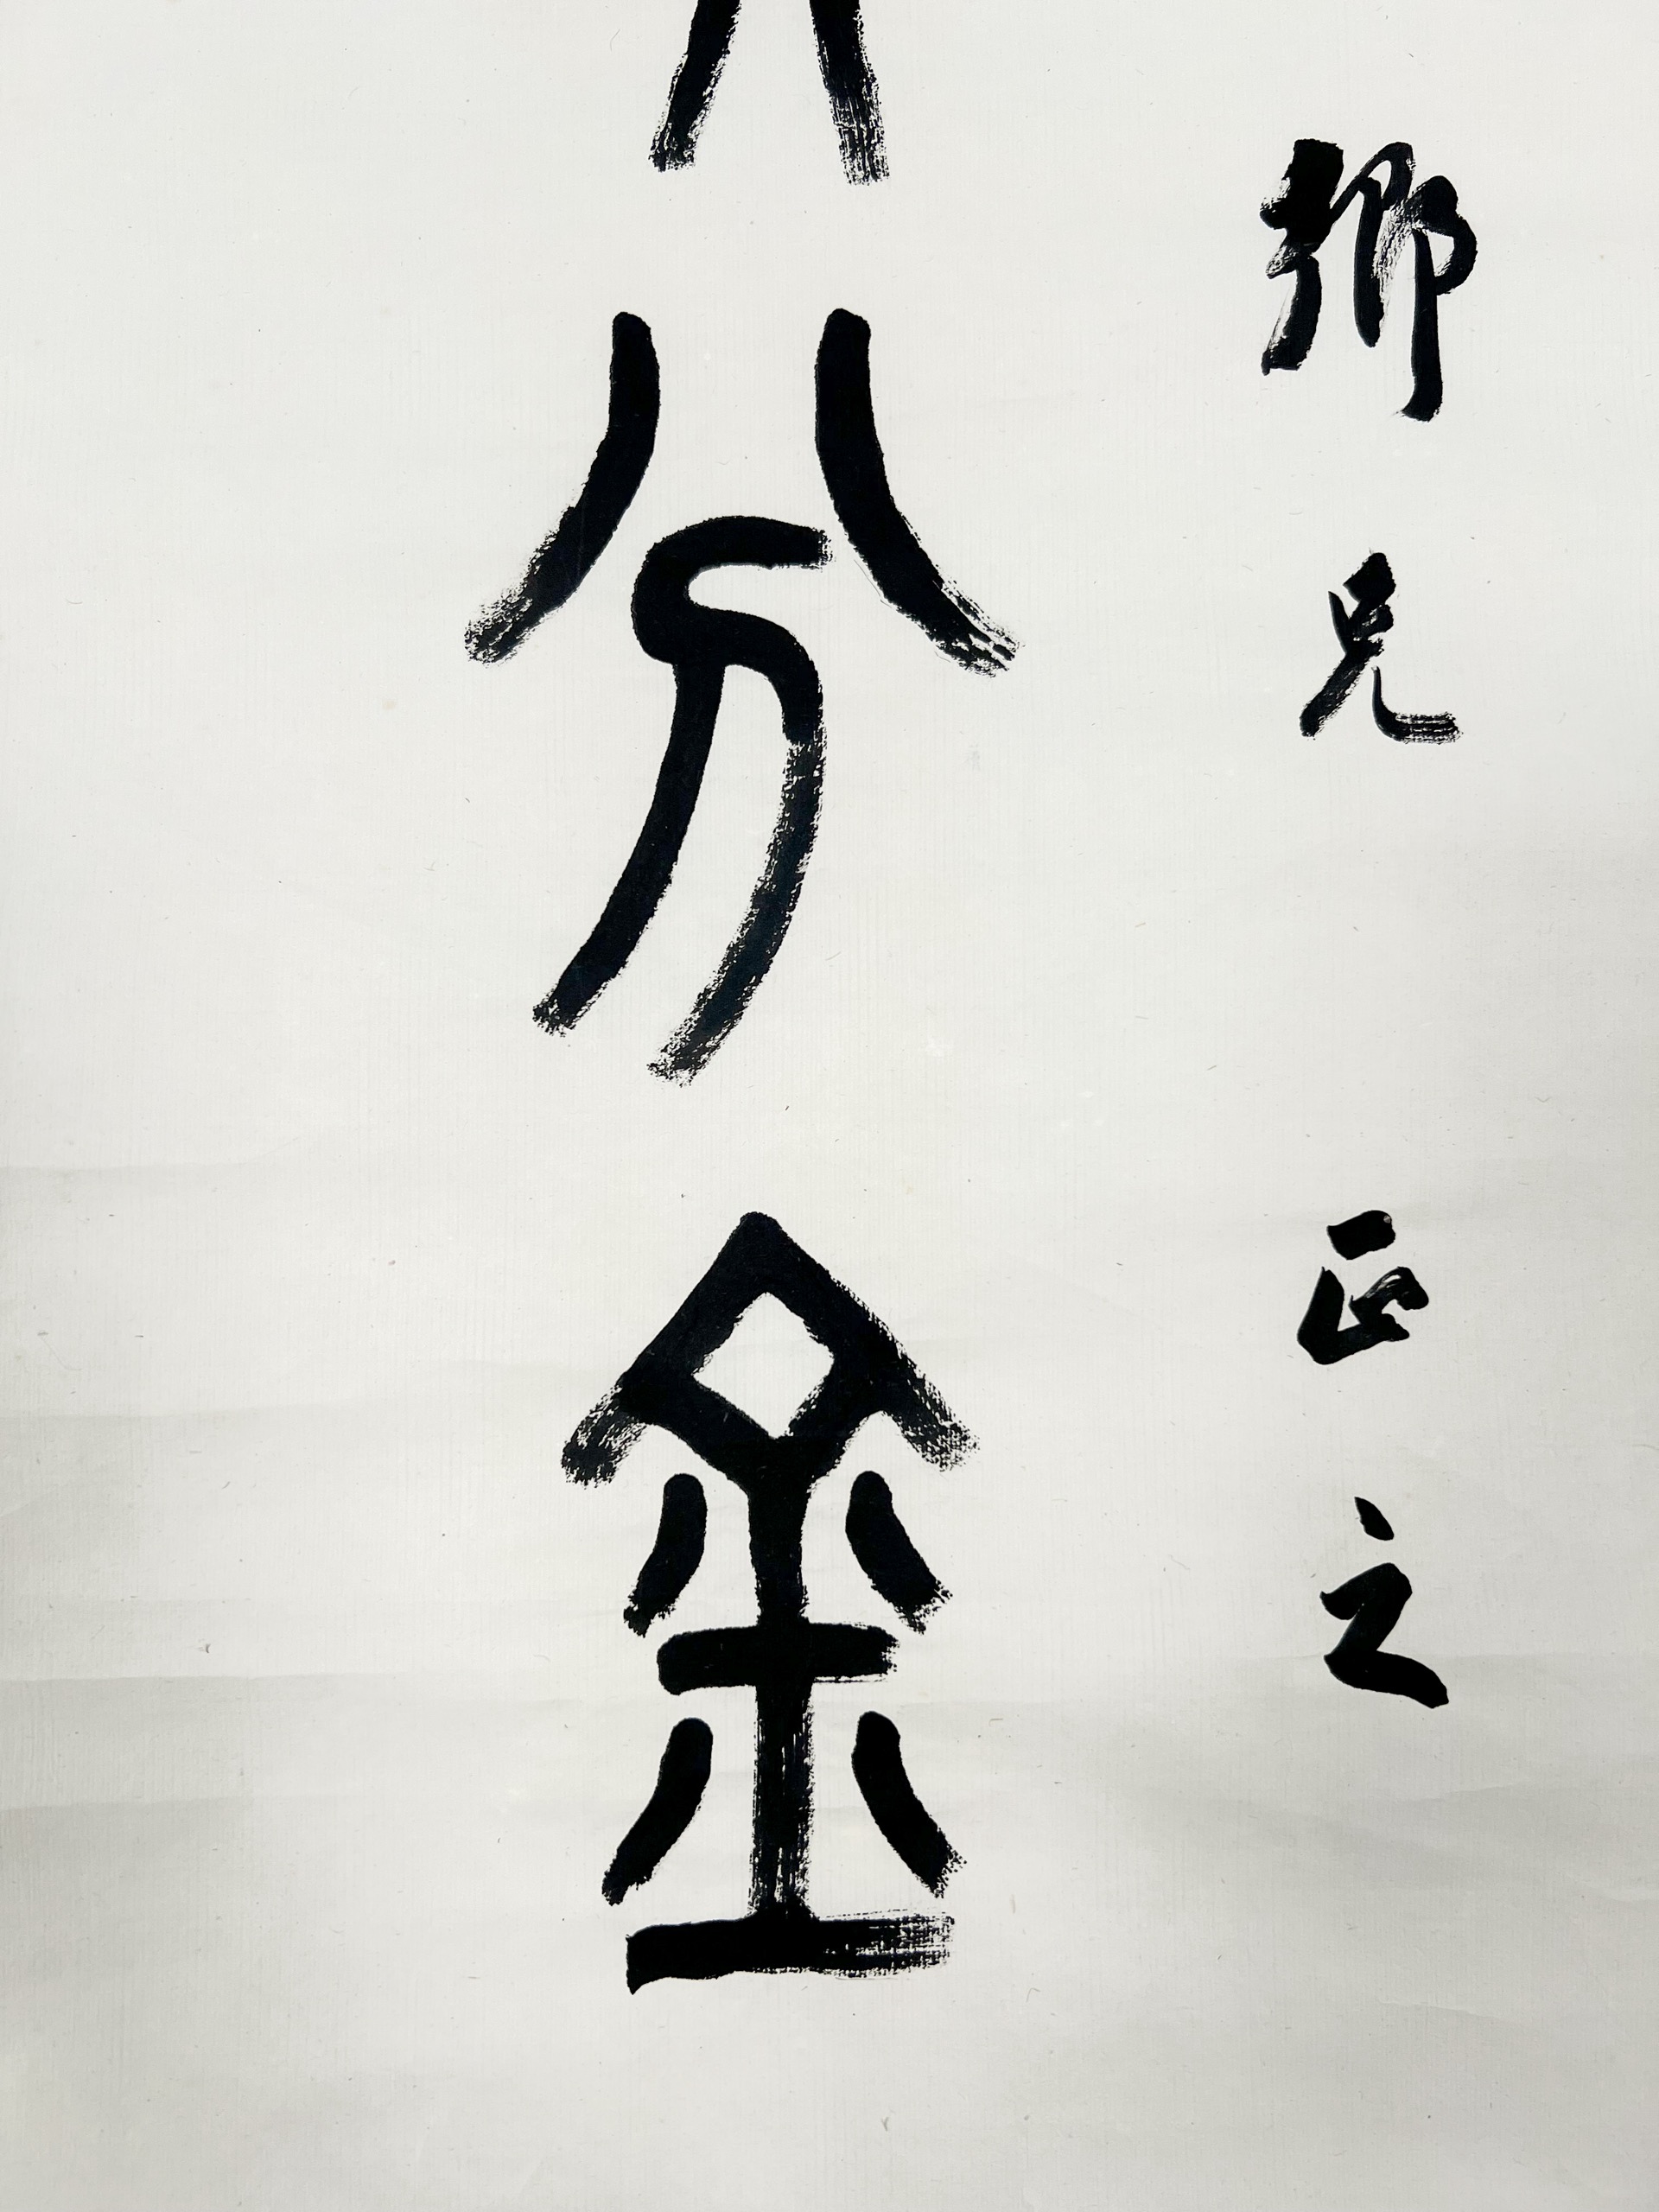 鄉兄正之
分金